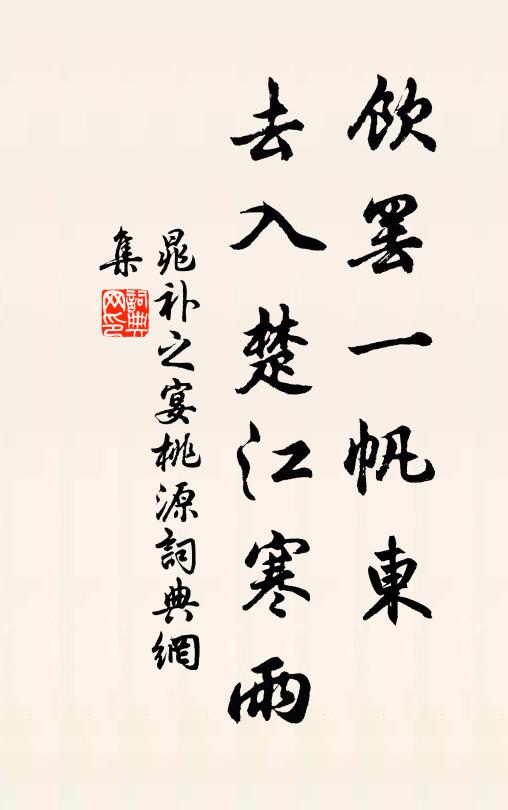 飲罷一帆東
去入楚江寒雨
晁补之宴桃源詞典網
集
詞典网印